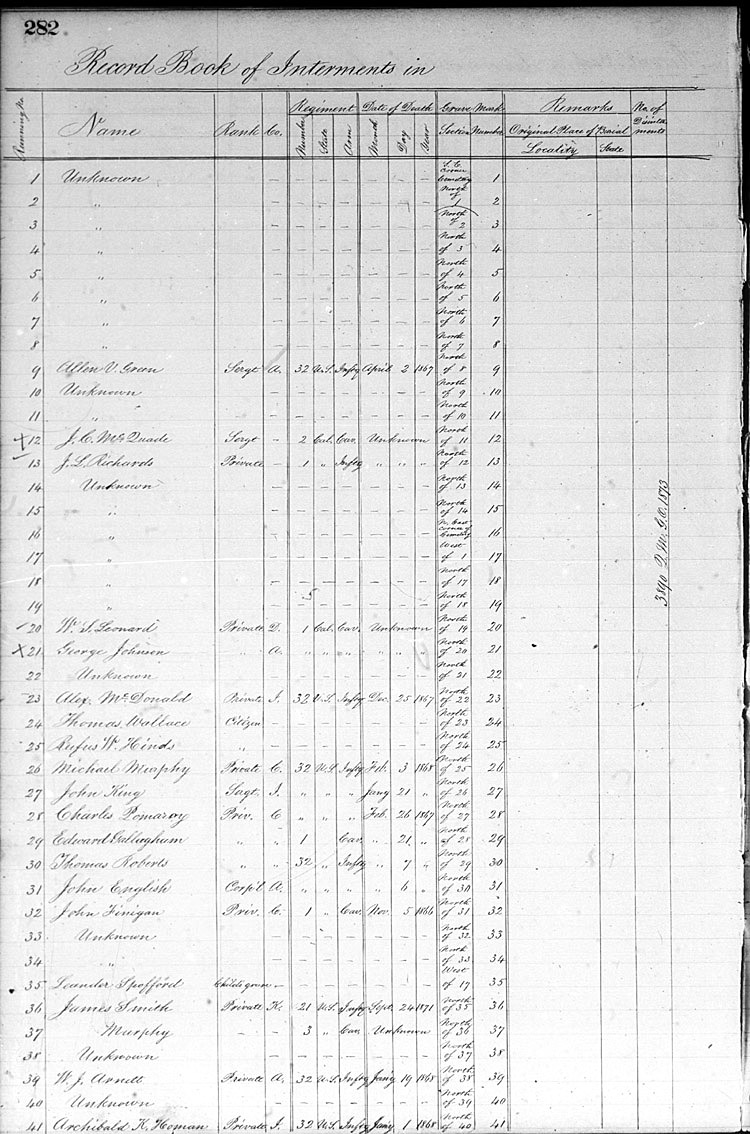 282
Record Book of Interments in
Running No. Name Rank Co. Regiment Date of Death Grave Mark Remarks No. of
Number State Arm Month Day Year Section Number Original Place of Burial Disinterments
Locality State
1 Unknown — — — — — — — — S. E. corner Cemetery 1
2 " — — — — — — North of 1 2
3 " — — — — — — North of 2 3
4 " — — — — — — North of 3 4
5 " — — — — — — North of 4 5
6 " — — — — — — North of 5 6
7 " — — — — — — North of 6 7
8 " — — — — — — North of 7 8
9 Allen V. Green Sergt A. 32 U.S. Infty April 2 1867 North of 8 9
10 Unknown — — — — — — North of 9 10
11 " — — — — — — North of 10 11
X 12 J. C. McQuade Sergt - 2 Cal. Cav. Unknown North of 11 12
13 J. L. Richards Private - 1 " Infty " " " North of 12 13
14 Unknown — — — — — — North of 13 14
15 " — — — — — — North of 14 15
16 " — — — — — — N. East corner of Cemetery 16
17 " — — — — — — West of 1 17
18 " — — — — — — North of 17 18
19 " — — — — — — North of 18 19
20 W. S. Leonard Private D. 1 Cal. Cav. Unknown North of 19 20
X 21 George Johnson " A. " " " " " " North of 20 21
22 Unknown — — — — — — North of 21 22
23 Alex. McDonald Private I. 32 U.S. Infty Dec. 25 1867 North of 22 23
24 Thomas Wallace Citizen — — — — — — North of 23 24
25 Rufus W. Hinds " — — — — — — North of 24 25
26 Michael Murphy Private C. 32 U.S. Infty Feb. 3 1868 North of 25 26
27 John King Sergt. I. " " " Jany 21 " North of 26 27
28 Charles Pomaroy Priv. C " " " Feb. 26 1867 North of 27 28
29 Edward Gallagham " " 1 " Cav. " 21 " North of 28 29
30 Thomas Roberts " " 32 " Infty " 7 " North of 29 30
31 John English Corp'l A. " " " " 6 " North of 30 31
32 John Finigan Priv. C. 1 " Cav. Nov. 5 1866 North of 31 32
33 Unknown — — — — — — North of 32 33
34 " — — — — — — North of 33 34
35 Leander Spofford Childs grave — — — — — — West of 17 35
36 James Smith Private K. 21 U.S. Infty Sept. 24 1871 North of 35 36
37 Murphy - - 3 " Cav. Unknown North of 36 37
38 Unknown — — — — — — North of 37 38
39 W. J. Arnett Private A. 32 U.S. Infty Jan'y 19 1868 North of 38 39
40 Unknown — — — — — — North of 39 40
41 Archibald K. Homan Private I. 32 U.S. Infty Jan'y 1 1868 North of 40 41
3890 Q. M. G. O. 1873